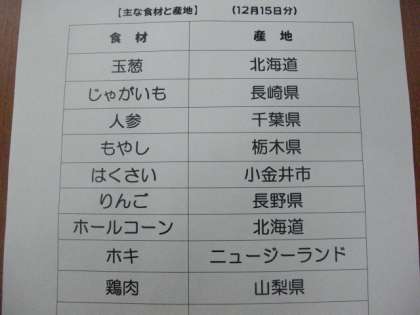 【主な食材と産地】 (12月15日分)
食 材 産 地
玉葱 北海道
じゃがいも 長崎県
人参 千葉県
もやし 栃木県
はくさい 小金井市
りんご 長野県
ホールコーン 北海道
ホキ ニュージーランド
鶏肉 山梨県